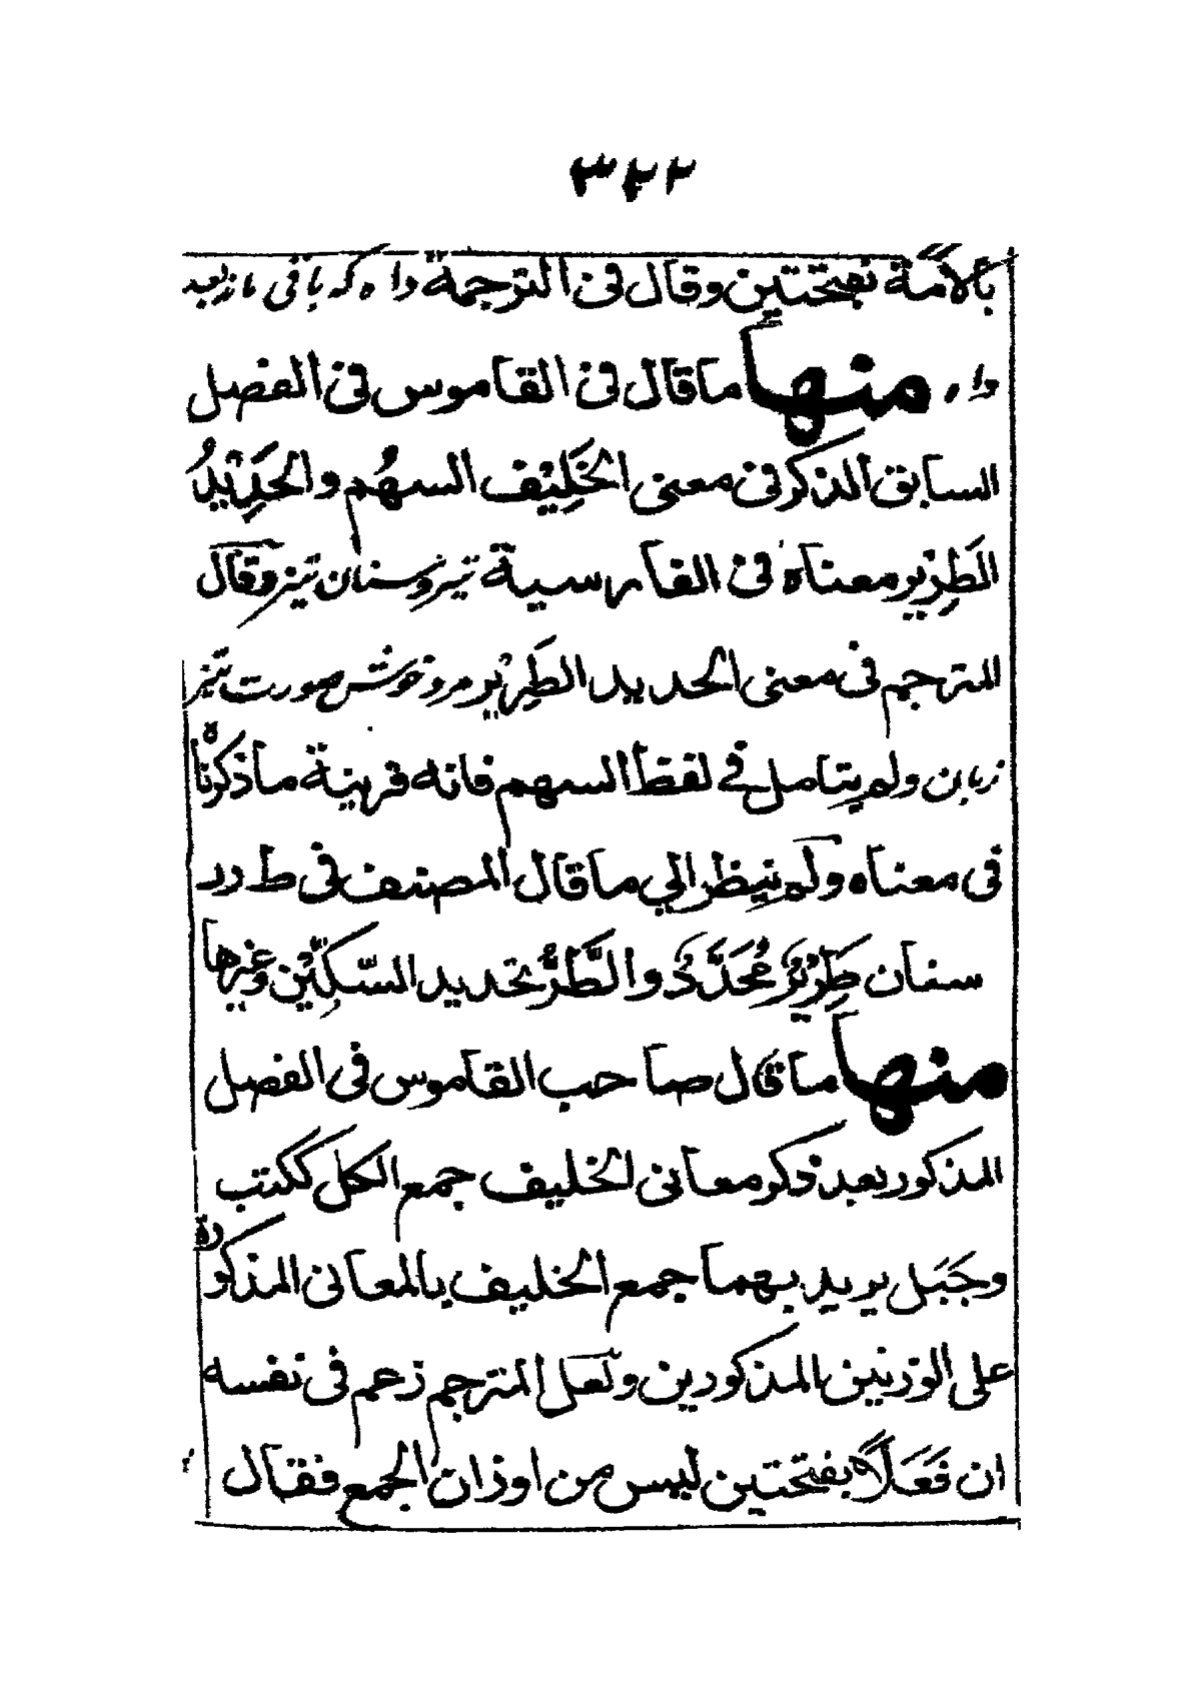 ٣٢٢
بالأمة بفتحتين وقال فى الترجمة داه كه باقى ماند بعد
داء منها ما قال فى القاموس فى الفصل
السابق الذكر فى معنى الخَلِيْف السهُم والحَدِيْدُ
الطَرِيْر معناه فى الفارسية تيز وسنان تيز وقال
المترجم فى معنى الحديد الطَرِيْر مرد خوش صورت تيز
زبان ولم يتامل فے لفظ السهم فانه قرينة ما ذكرناه
فى معناه ولم ينظر الى ما قال المصنف فى ط ر ر
سنان طَرِيْرٌ مُحَدَّدٌ والطَّرُّ تحديد السّكِّيْن وغيرها
منها ما قال صاحب القاموس فى الفصل
المذكور بعد ذكر معانى الخليف جمع الكل ككتب
وجَبَل يريد بهما جمع الخليف بالمعانى المذكورة
على الوزنين المذكورين ولعل المترجم زعم فى نفسه
ان فَعَلًا بفتحتين ليس من اوزان الجمع فقال